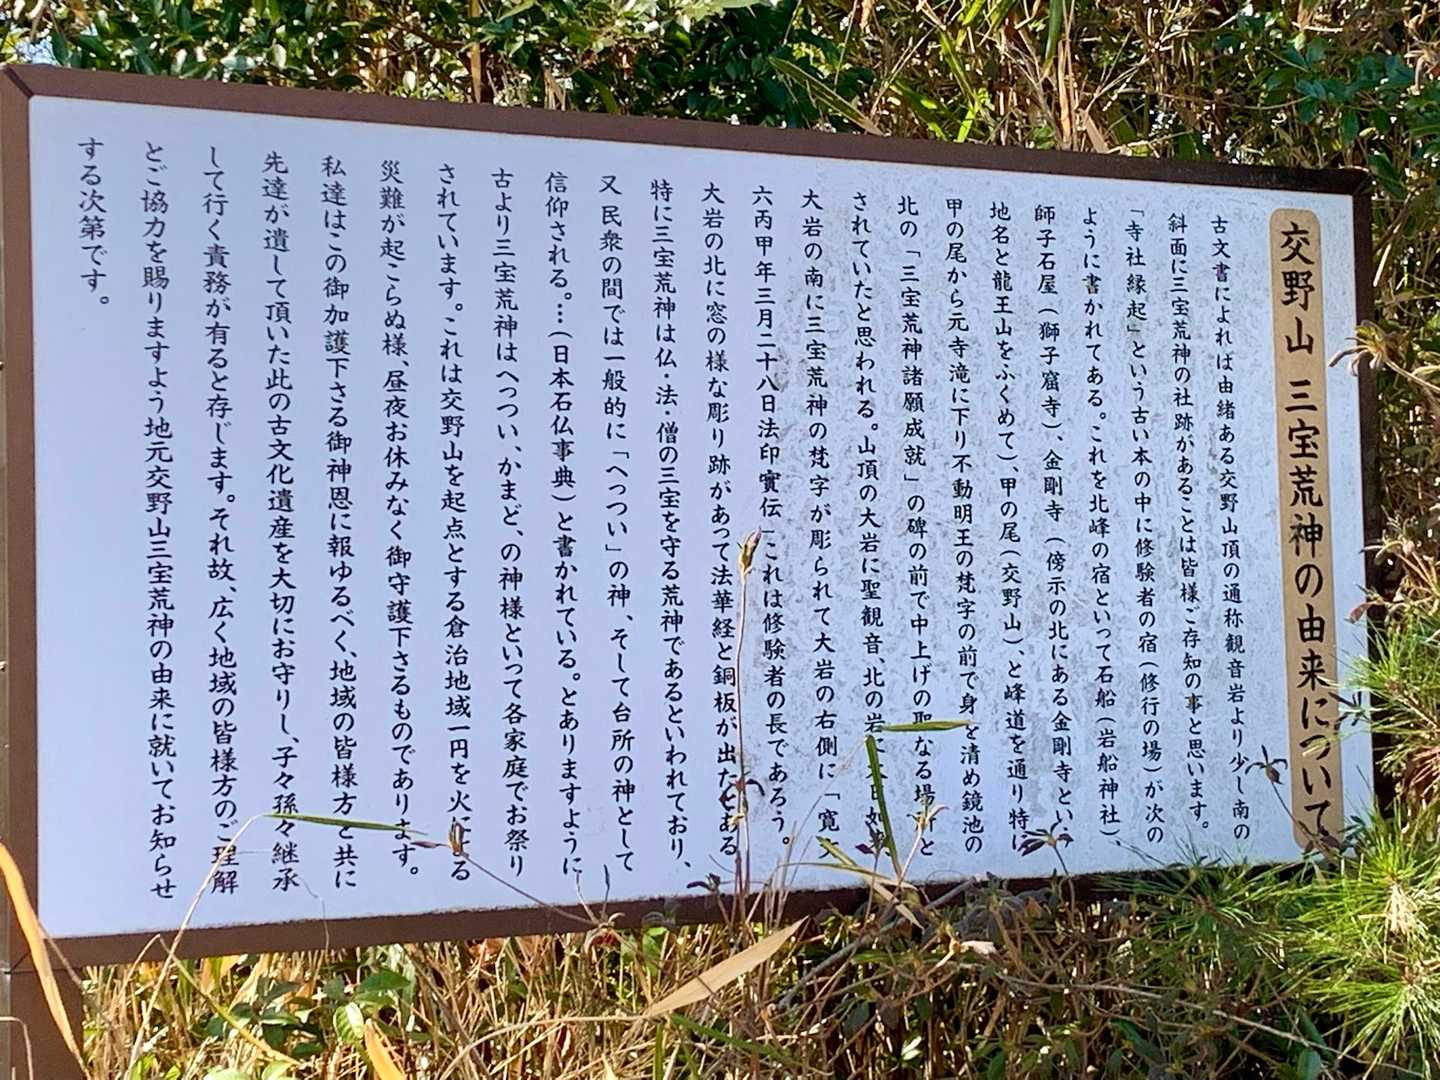 交野山 三宝荒神の由来について
古文書によれば由緒ある交野山頂の通称観音岩より少し南の
斜面に三宝荒神の社跡があることは皆様ご存知の事と思います。
「寺社縁起」という古い本の中に修験者の宿(修行の場)が次の
ように書かれてある。これを北峰の宿といって石船(岩船神社)、
師子石屋(獅子窟寺)、金剛寺(傍示の北にある金剛寺とい
地名と龍王山をふくめて)、甲の尾(交野山)、と峰道を通り特に
甲の尾から元寺滝に下り不動明王の梵字の前で身を清め鏡池の
北の「三宝荒神諸願成就」の碑の前で中上げの聖なる場所と
されていたと思われる。山頂の大岩に聖観音、北の岩に大日如来
大岩の南に三宝荒神の梵字が彫られて大岩の右側に「寛文
六丙甲年三月二十八日法印實伝」これは修験者の長であろう。
大岩の北に窓の様な彫り跡があって法華経と銅板が出たとある
特に三宝荒神は仏・法・僧の三宝を守る荒神であるといわれており、
又民衆の間では一般的に「へっつい」の神、そして台所の神として
信仰される。…(日本石仏事典)と書かれている。とありますように
古より三宝荒神はへっつい、かまど、の神様といって各家庭でお祭り
されています。これは交野山を起点とする倉治地域一円を火による
災難が起こらぬ様、昼夜お休みなく御守護下さるものであります。
私達はこの御加護下さる御神恩に報ゆるべく、地域の皆様方と共に
先達が遺して頂いた此の古文化遺産を大切にお守りし、子々孫々継承
して行く責務が有ると存じます。それ故、広く地域の皆様方のご理解
とご協力を賜りますよう地元交野山三宝荒神の由来に就いてお知らせ
する次第です。